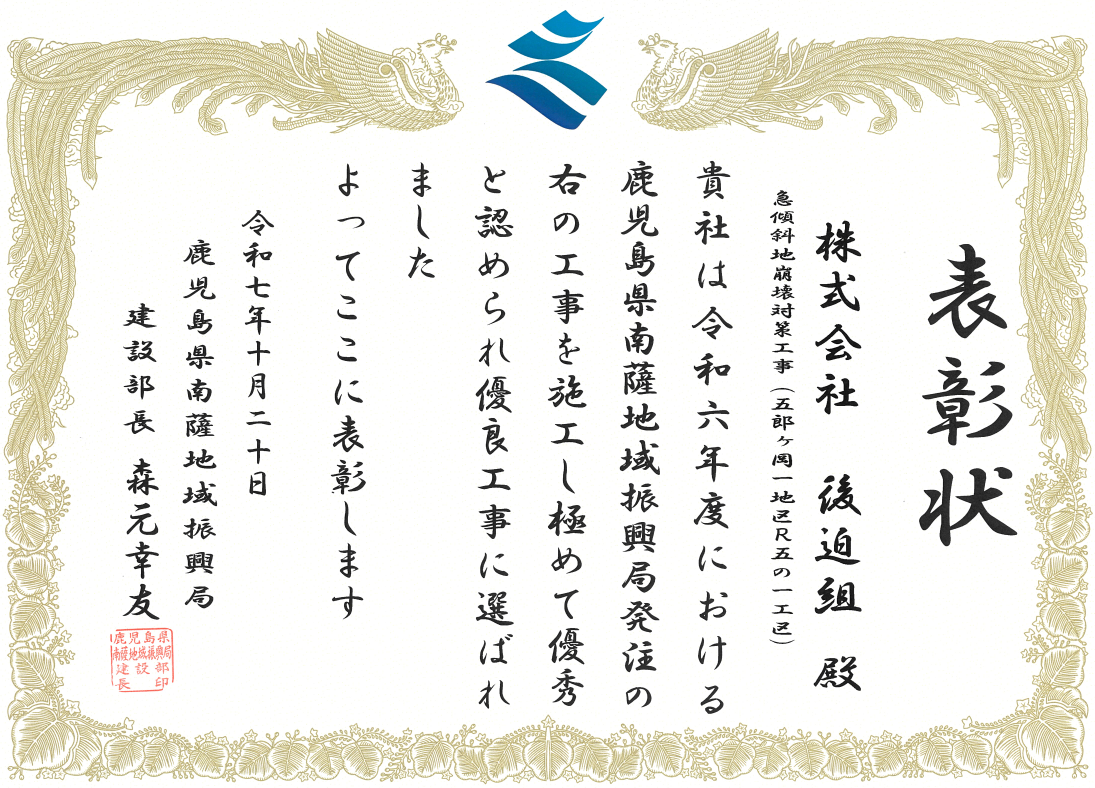 表彰状
株式会社 後迫組 殿
急傾斜地崩壊対策工事(五郎ヶ岡一地区R五の一工区)
貴社は令和六年度における
鹿児島県南薩地域振興局発注の
右の工事を施工し極めて優秀
と認められ優良工事に選ばれ
ました
よってここに表彰します
令和七年十月二十日
鹿児島県南薩地域振興局
建設部長 森元幸友
鹿児島県
南薩地域振興局
建設部
長印